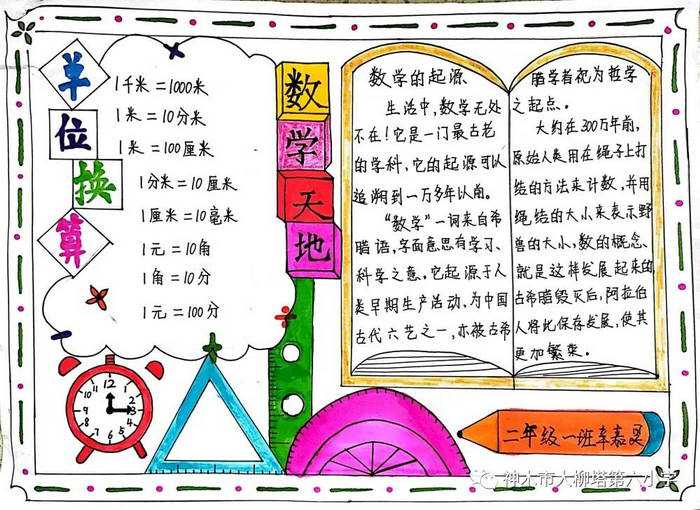 单位换算
1千米=1000米
1米=10分米
1米=100厘米
1分米=10厘米
1厘米=10毫米
1元=10角
1角=10分
1元=100分
数学天地
数学的起源
生活中,数学无处
不在!它是一门最古老
的学科,它的起源可以
追溯到一万多年以前。
“数学”一词来自希
腊语,字面意思有学习、
科学之意。它起源于人
类早期生产活动,为中国
古代六艺之一,亦被古希
腊学者视为哲学
之起点。
大约在300万年前,
原始人类用在绳子上打
结的方法来计数,并用
绳结的大小来表示野
兽的大小,数的概念、
就是这样发展起来的
古希腊毁灭后,阿拉伯
人将此保存发展,使其
更加繁荣。
12
3
4
5
6
7
8
9
10
11
二年级一班
神木市大柳塔第六小学